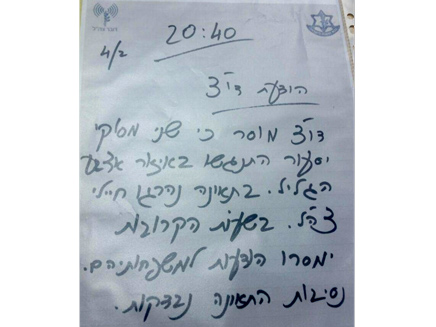 20:40
4/2
הודעת דו"צ
דו"צ מוסר כי שני מסוקי
יסעור התנגשו באיזור אצבע
הגליל. בתאונה נהרגו חיילי
צה"ל. בשעות הקרובות
ימסרו הודעות למשפחותיהם.
נסיבות התאונה נבדקות.